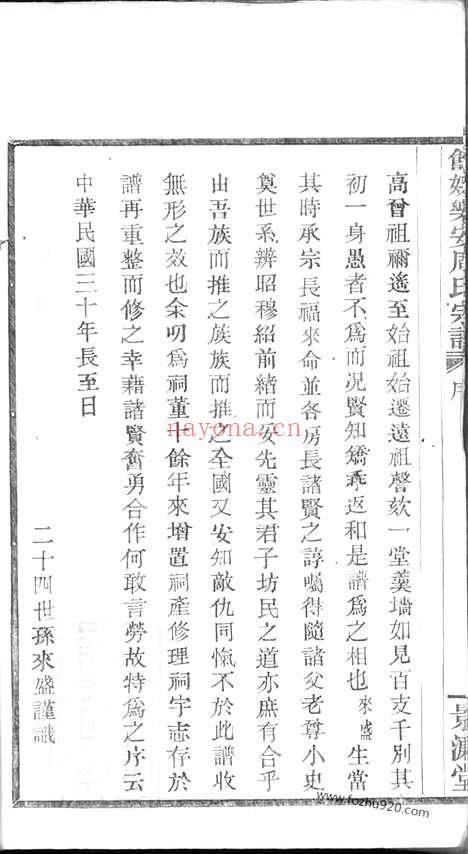 餘姚樂安周氏宗譜 序
景濂堂
高曾祖禰遙至始祖始遷遠祖謦欬一堂羹墻如見百支千別其
初一身愚者不爲而况賢知矯乖返和是譜爲之相也來盛生當
其時承宗長福來命並各房長諸賢之諄囑得隨諸父老尊小史
奠世系辨昭穆紹前緒而安先靈其君子坊民之道亦庶有合乎
由吾族而推之族族而推之全國又安知敵仇同愾不於此譜收
無形之效也余明爲祠董十餘年來增置祠產修理祠宇志存於
譜再重整而修之幸藉諸賢奮勇合作何敢言勞故特爲之序云
中華民國三十年長至日
二十四世孫來盛謹識
nayona.cn
www.fozhu920.com